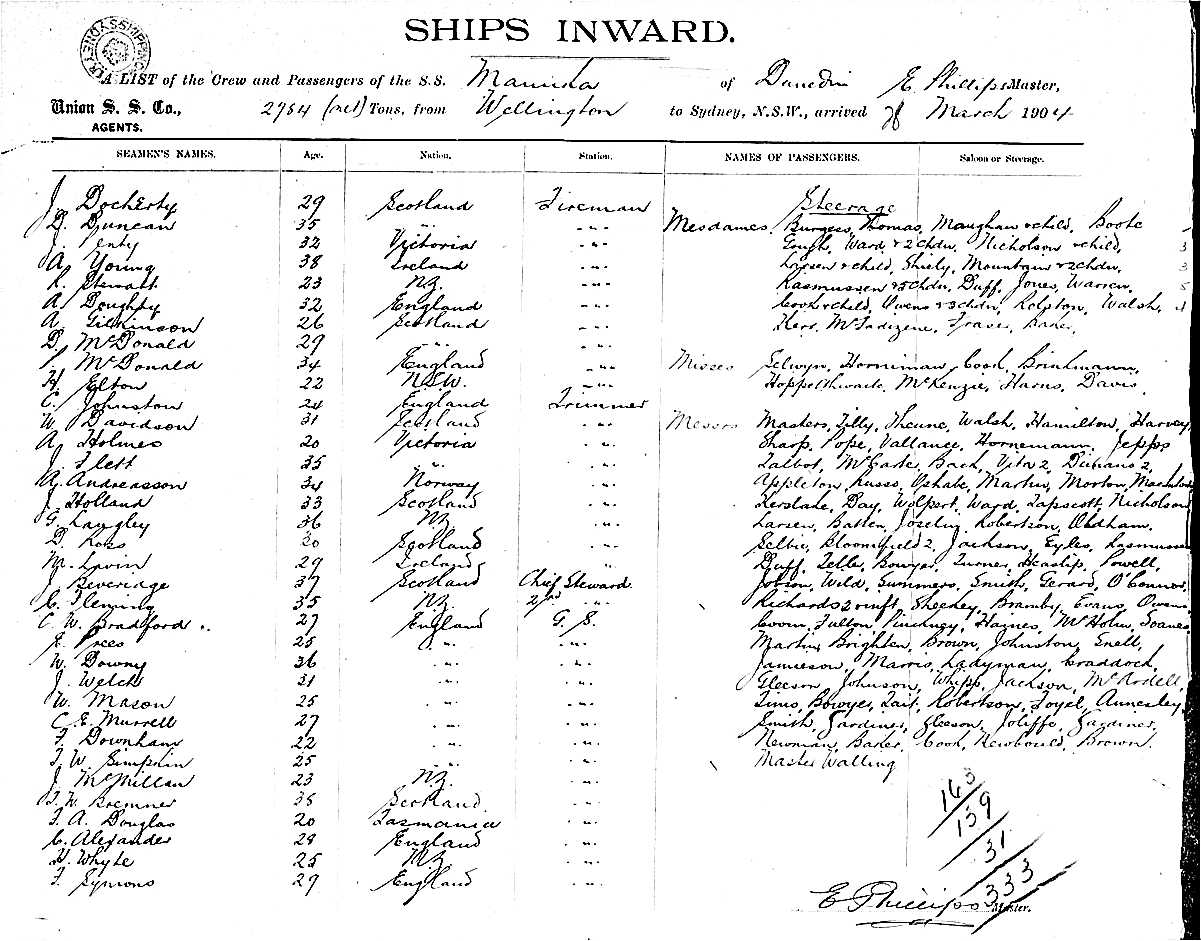 SHIPS INWARD.
A LIST of the Crew and Passengers of the S.S. Manuka of Dunedin E Phillips Master,
Union S. S. Co., 2784 (net) Tons, from Wellington to Sydney, N.S.W., arrived March 1904
AGENTS.
SEAMEN'S NAMES. Age. Nation. Station. NAMES OF PASSENGERS. Saloon or Steerage.
J. Docherty 29 Scotland Fireman
D. Duncan 35 " "
J. 32 Victoria "
A. Young 38 Ireland "
R. Stewart 23 N.Z. "
A. Doughty 32 England "
A. Gilkinson 26 Scotland "
D. McDonald 29 " "
McDonald 34 England "
H. Elton 22 N.S.W. "
C. Johnston 24 England Trimmer
W. Davidson 31 Scotland "
A. Holmes 20 Victoria "
J. Flett 35 " "
A. Andreasson 34 Norway "
J. Holland 33 Scotland "
G. Langley 36 N.Z. "
D. Ross 30 Scotland "
M. Lavin 29 Ireland "
J. Beveridge 37 Scotland Chief Steward
C. Fleming 35 N.Z. 2nd "
C. W. Bradford 27 England G. S.
E. Prees 25 " "
W. Downy 36 " "
J. Welch 31 " "
W. Mason 25 " "
C. E. Murrell 27 " "
F. Downham 22 " "
F. W. Simpkin 25 " "
J. McMillan 23 N.Z. "
T. W. Bremner 38 Scotland "
F. A. Douglas 20 Tasmania "
C. Alexander 28 England "
H. Whyte 25 N.Z. "
F. Symons 29 England "
Steerage
Mesdames Burgess, Thomas, Maughan & child, Boote
Gough, Ward & 2 chdn, Nicholson & child,
Larsen & child, Shiely, Mountain & 2 chdn,
Rasmussen & 5 chdn, Duff, Jones, Warren,
Cook & child, Owens & 3 chdn, Rolston, Walsh,
Kerr, Fraser, Baker,
Misses Selwyn, Horniman, Cook, Brinkmann,
Hoppelthwaite, McKenzie, Harris, Davis
Messrs Masters, Tilly, Theune, Walsh, Hamilton, Harvey
Sharp, Pope, Vallance, Hornemann, Jepps
Talbot, McCaske, Bach, Vita 2,
Appleton, Russo, Martin, Morton,
Kerslake, Day, Wolpert, Ward, Tapscott, Nicholson
Larsen, Batten, Joselin, Robertson, Oldham,
Selbie, Bloomfield 2, Jackson, Eyles, Rasmussen
Duff, Bowyer, Turner, Heaslip, Powell,
Jobson, Wild, Summers, Smith, Gerard, O'Connor
Richards 2 Sheehey, Bramby, Evans, Owens
Coorn, Fulton, Pinckney, Haines, Soanes
Martin, Brighten, Brown, Johnston, Snell,
Jamieson, Morris, Ladyman, Craddock,
Gleeson, Johnson, Whipp, Jackson, McArdell,
Tims, Bowyer, Tait, Robertson, Annesley
Smith, Gardiner, Gleeson, Joliffe, Gardiner,
Newman, Baker, Cook, Newbould, Brown.
Master Walling
163
139
31
333
E Phillips Master.